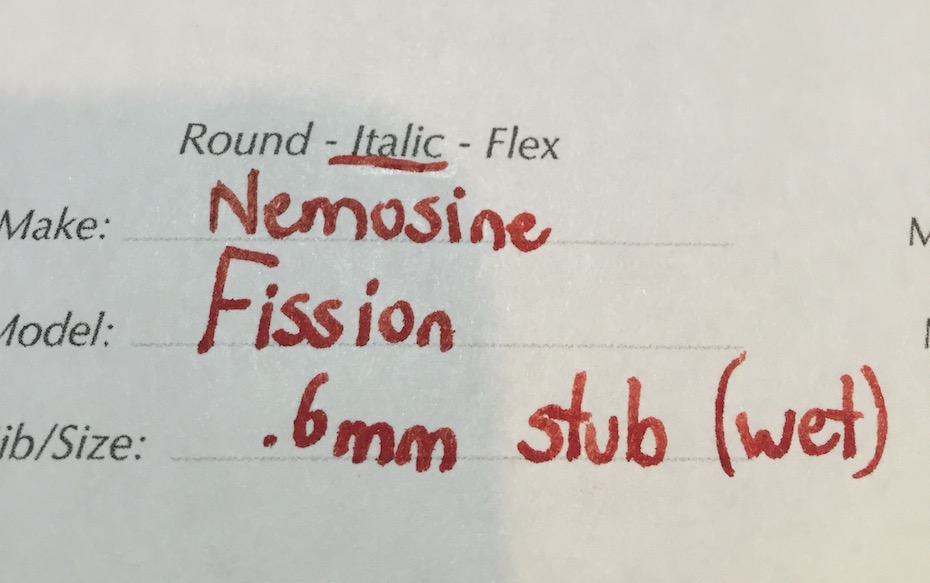 Round - Italic - Flex
Make: Nemosine
Model: Fission
Nib/Size: .6mm stub (wet)